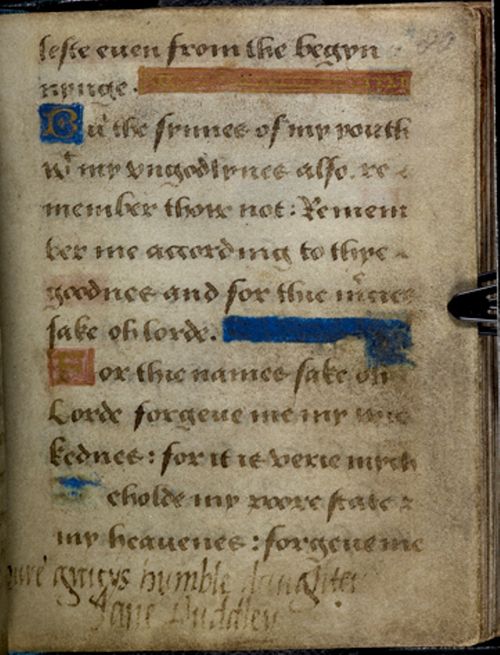 leste euen from the begyn
nynge.
But the synnes of my youth
wt my vngodlynes also. re
member thow not: Remem
ber me according to thye
goodnes and for thie mcies
sake oh lorde.
For thie names sake oh
Lorde forgeue me my wic
kednes: for it is verie mych
eholde my poore state &
my heauenes: forgeue me
oure gracys humble daughter
Jane Duddley